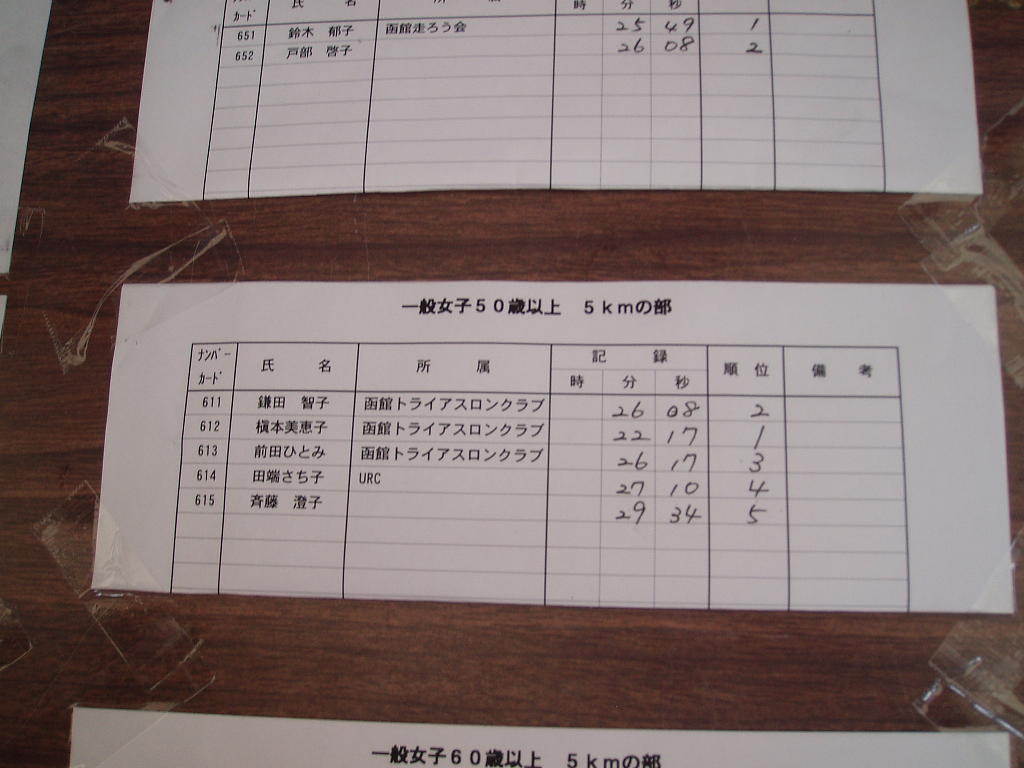 ｶｰﾄﾞ 氏 名 時 分 秒
651 鈴木 郁子 函館走ろう会 25 49 1
652 戸部 啓子 26 08 2
一般女子５０歳以上 ５ｋｍの部
ﾅﾝﾊﾞｰ ｶｰﾄﾞ 氏 名 所 属 記 録 順 位 備 考
時 分 秒
611 鎌田 智子 函館トライアスロンクラブ 26 08 2
612 槇本美恵子 函館トライアスロンクラブ 22 17 1
613 前田ひとみ 函館トライアスロンクラブ 26 17 3
614 田端さち子 URC 27 10 4
615 斉藤 澄子 29 34 5
一般女子６０歳以上 ５ｋｍの部